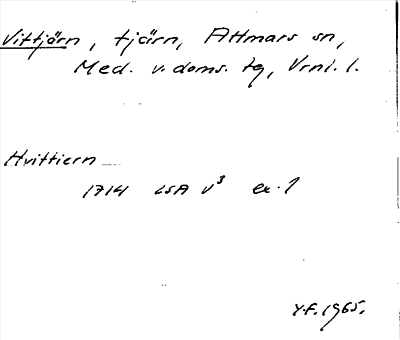 Vittjärn, tjärn, Attmars sn,
Med. v. doms. tg, Vrnl. l.
Hvittiern
1714 LSA V³ ex. 1
Y.F. 1965.